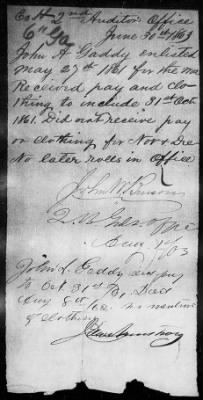 Co H 2nd Auditor's Office
6" Ga June 30th 1863
John H. Gaddy enlisted
May 27th 1861 for the war
Received pay and clo-
thing to include 31st Oct
1861. Did not receive pay
or clothing for Nov & Dec
No later rolls in Office
John W.
2. M Genl Offic
Aug 63
John L. Gaddy
to Oct 31st
Aug 8th 62. no mention
of clothing